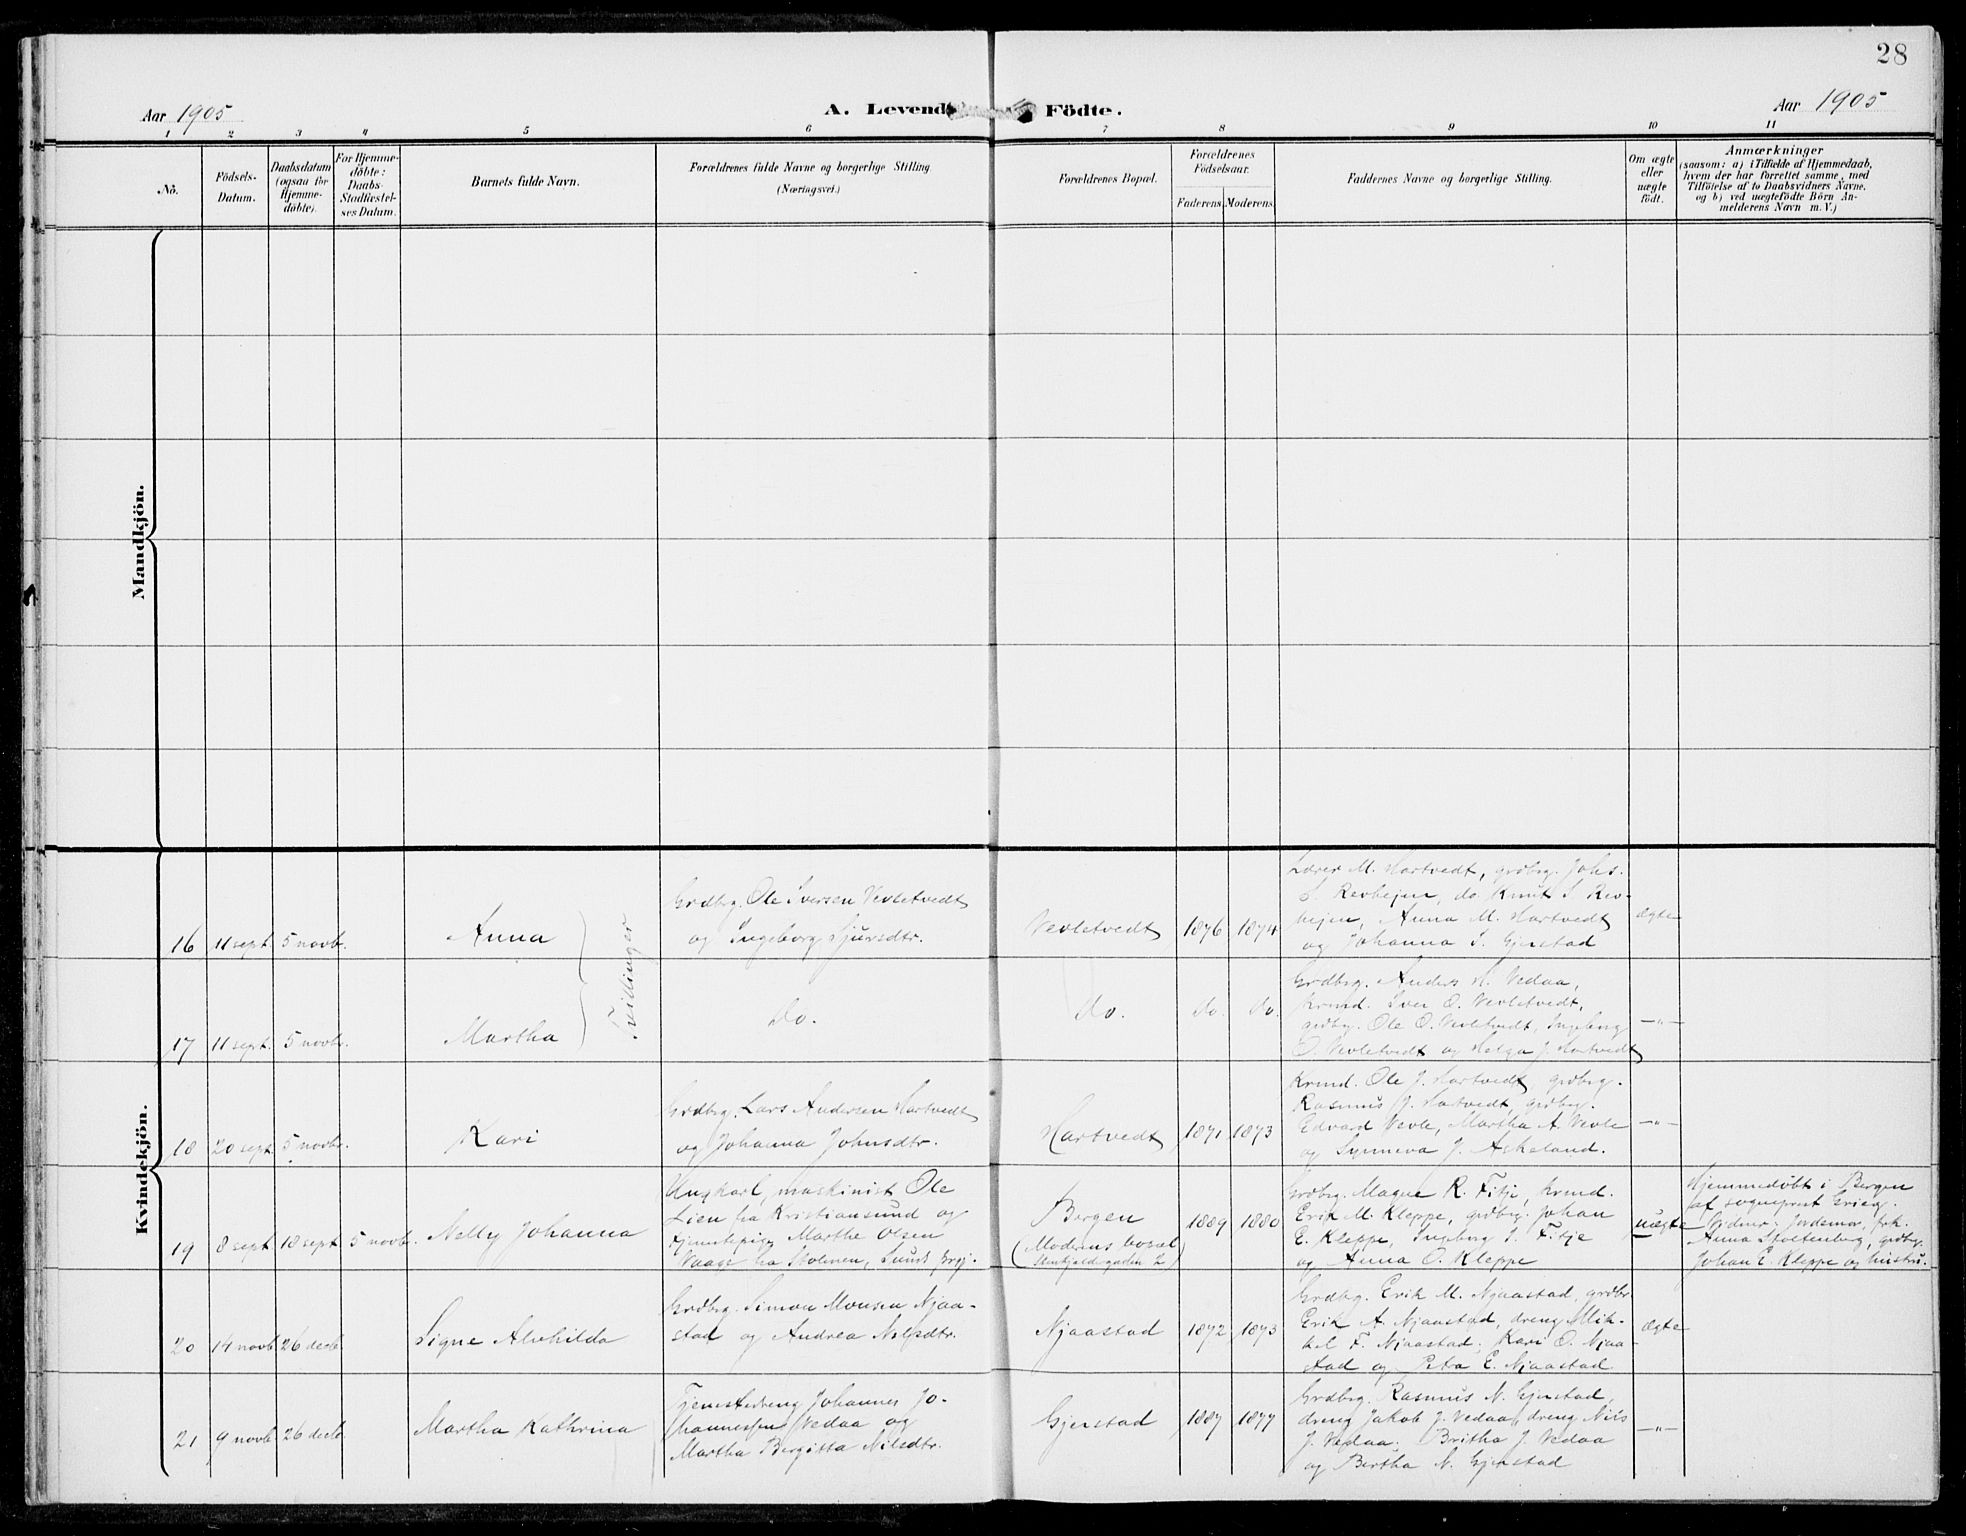 28
Aar 1905
A. Levende Födte.
Aar 1905
1 2 3 4 5 6 7 8 9 10 11
No.
Födsels-
Datum.
Daabsdatum
(ogsaa for
Hjemme-
döbte).
For Hjemme-
döbte:
Daabs-
Stadfæstel-
ses Datum.
Barnets fulde Navn.
Forældrenes fulde Navne og borgerlige Stilling
(Næringsvei.)
Forældrenes Bopæl.
Forældrenes
Födselsaar.
Faderens. Moderens.
Faddernes Navne og borgerlige Stilling.
Om ægte
eller
uægte
födt.
Anmærkninger
(saasom: a) i Tilfælde af Hjemmedaab,
hvem der har forrettet samme, med
Tilföielse af to Daabsvidners Navne,
og b) ved uægtefödte Börn An-
melderens Navn m. V.)
Mandkjön.
Kvindekjön.
16 11 sept. 5 novb.
Anna
Tvillinger
Grdbrg. Ole Iversen Vevletvedt
og Ingeborg Sjursdtr.
Vevletvedt
1876 1874
Lærer M. Hartvedt, grdbrg. Johs.
S. Revhejen, do. Knut S. Rev-
hejen, Anna M. Hartvedt
og Johanna S. Gjerstad
ægte
17 11 sept. 5 novb.
Martha
Do.
Do.
Do. Do.
Grdbrg. Anders H. Vedaa,
krmd. Iver O. Vevletvedt,
grdbrg. Ole O. Vevletvedt, Ingeborg
O. Vevletvedt og Helga J. Hartvedt
—„—
18 20 sept. 5 novb.
Kari
Grdbrg. Lars Andersen Hartvedt
og Johanna Johnsdtr.
Hartvedt
1871 1873
Krmd. Ole J. Hartvedt, grdbrg.
Rasmus J. Hartvedt, grdbrg.
Edvard Vevle, Martha A. Vevle
og Synneva J. Askeland.
—„—
19 8 sept. 18 sept. 5 novb.
Nelly Johanna
Ungkarl, maskinist Ole
Lien fra Kristiansund og
tjenestepige Marthe Olsen
Vaage fra Stolmen, Sunds prgj.
Bergen
(Moderens bopæl
1889 1880
Grdbrg. Magne R. Fitje, krmd.
Erik M. Kleppe, grdbrg. Johan
E. Kleppe, Ingeborg S. Fitje
og Anna O. Kleppe
uægte
Hjemmedöbt i Bergen
af sogneprest Grieg.
Vidner: Jordemor, frk.
Anna Stoltenberg, grdbrg.
Johan E. Kleppe og hustru.
20 14 novb. 26 decb.
Signe Alvhilda
Grdbrg. Simon Monsen Njaa-
stad og Andrea Nilsdtr.
Njaastad
1872 1873
Grdbrg. Erik M. Njaastad, grdbr.
Erik A. Njaastad, dreng Mik-
kel F. Njaastad, Kari O. Njaa-
stad og Petra E. Njaastad.
ægte
21 9 novb. 26 decb.
Martha Kathrina
Tjenestedreng Johannes Jo-
hannessen Vedaa og
Martha Bergitta Nilsdtr.
Gjerstad
1887 1877
Grdbrg. Rasmus N. Gjerstad,
dreng Jakob J. Vedaa, dreng Nils
J. Vedaa, Britha J. Vedaa
og Bertha N. Gjerstad
—„—